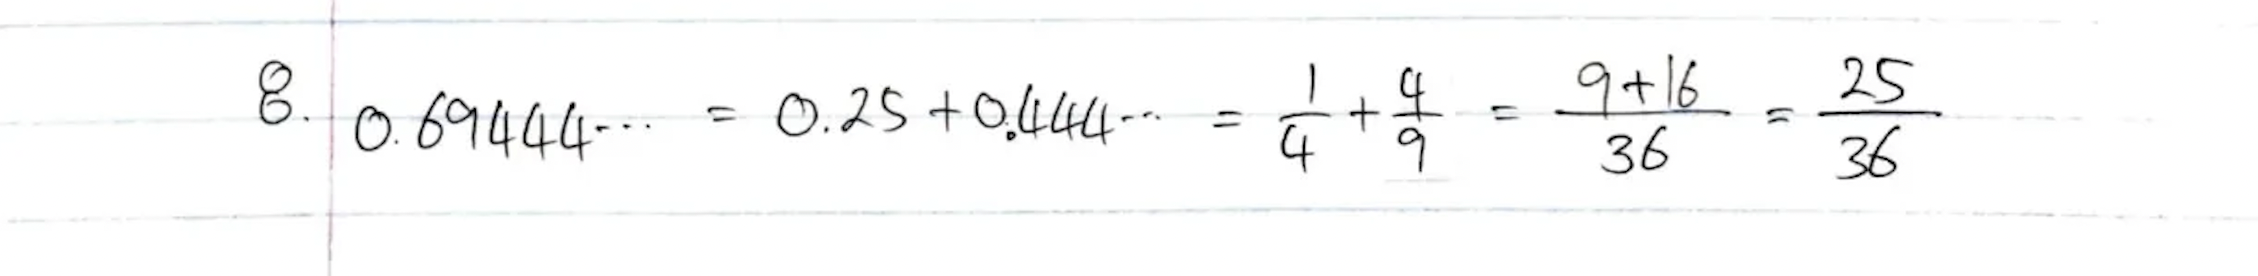 8. 0.69444... = 0.25 + 0.444... = 1/4 + 4/9 = (9+16)/36 = 25/36